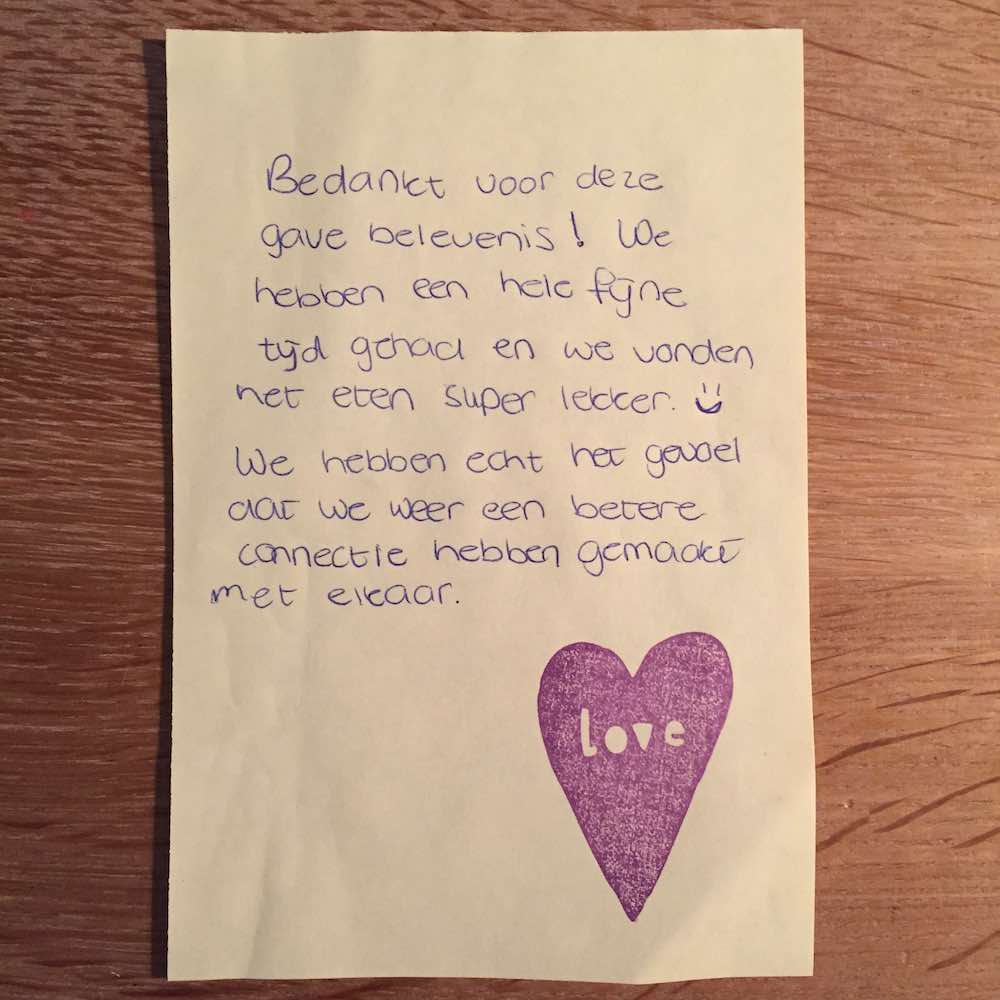 Bedankt voor deze
gave belevenis! We
hebben een hele fijne
tijd gehad en we vonden
het eten super lekker.
We hebben echt het gevoel
dat we weer een betere
connectie hebben gemaakt
met elkaar.
love